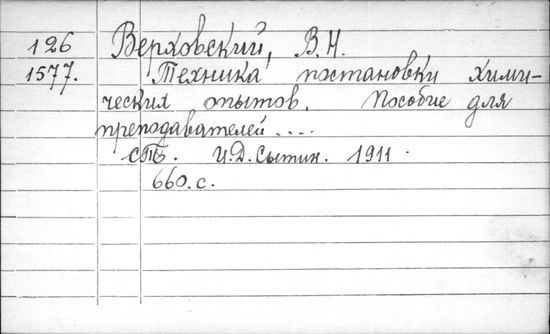 126 Верховский, В.Н.
1577. Техника постановки хими-
ческих опытов. Пособие для
преподавателей ....
СПБ. И.Д.Сытин. 1911.
660.с.